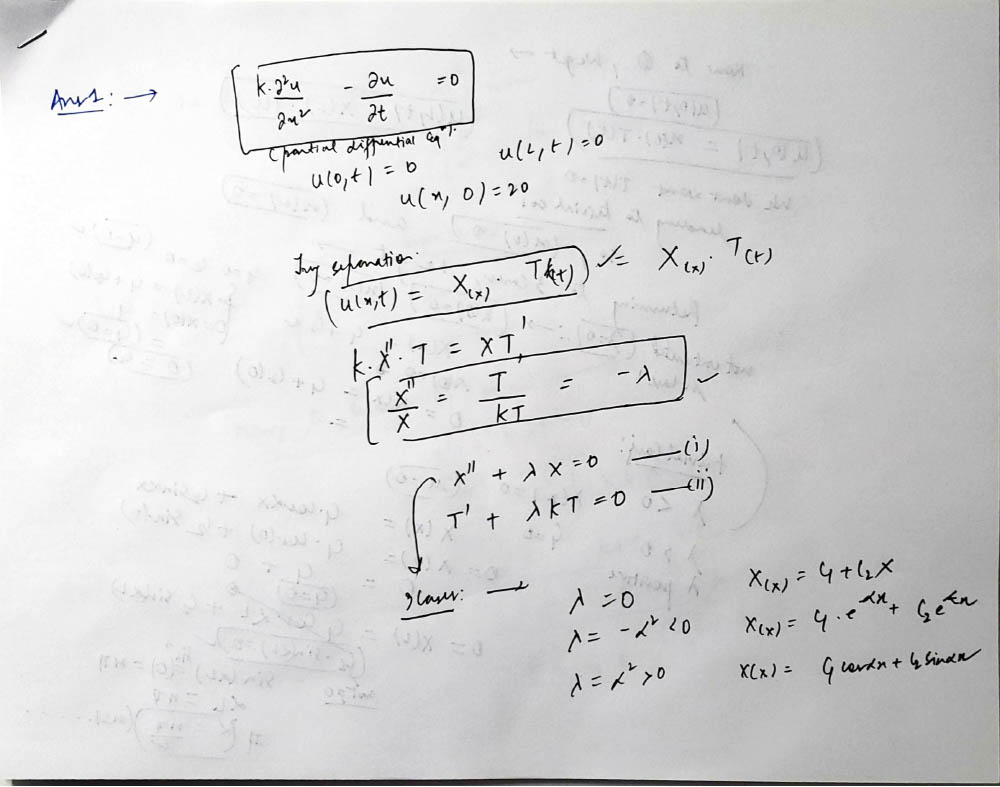 Ans1: →
k.∂²u/∂x² - ∂u/∂t = 0
(partial differential eqⁿ).
u(0,t) = 0
u(L,t) = 0
u(x, 0) = 20
Try separation.
(u(x,t) = X(x) T(t)) = X(x) · T(t)
k.X''. T = XT'
X''/X = T/kT = -λ
X'' + λX = 0 —(i)
T' + λkT = 0 —(ii)
3 cases: →
λ = 0 X(x) = C₁ + C₂X
λ = -α² < 0 X(x) = C₁.e^αx + C₂e^-αx
λ = α² > 0 X(x) = C₁ cosαx + C₂ sinαx